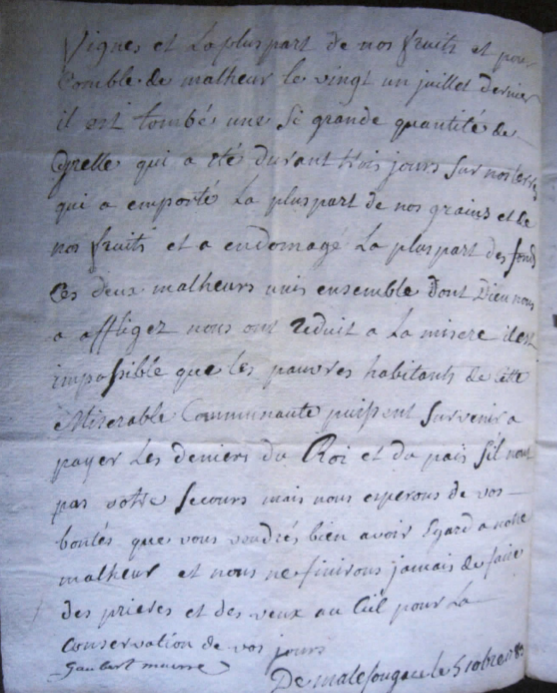 Vignes et La pluspart de nos fruits et pour
Comble de malheur le vingt un juillet dernier
il est tombé une si grande quantité de
Grelle qui a eté durant trois jours sur nos terres
qui a emporté La pluspart de nos grains et de
nos fruits et a endomagé La pluspart des fonds
Ces deux malheurs unis ensemble Dont Dieu nous
a affligez nous ont reduit a La misere il est
impossible que les pauvres habitants de cette
Miserable Communauté puissent survenir a
payer Les deniers du Roi et du païs s'il nont
pas votre secours mais nous esperons de vos
bontés que vous voudrés bien avoir Egard a notre
malheur et nous ne finirons jamais de faire
des prieres et des veux au Ciel pour La
Conservation de vos jours
De malefougace le 5 10bre